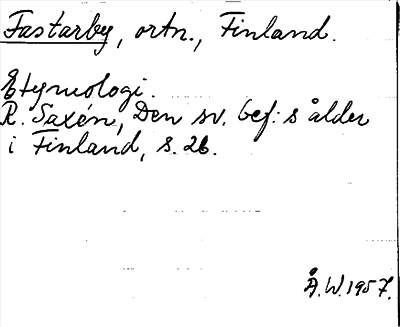 Fastarby, ortn., Finland.
Etymologi.
R. Saxén, Den sv. bef:s ålder
i Finland, s. 26.
Å.W. 1957.